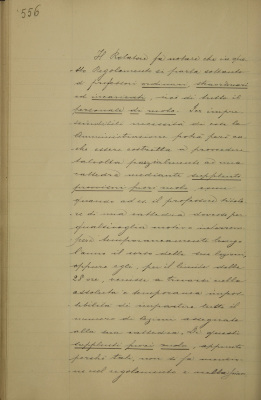 556
Il Relatore fa notare che in que-
sto Regolamento si parla soltanto
di professori ordinari, straordinari
ed incaricati, ma di tutto il
personale di ruolo. Per impre-
scindibili necessità di cose la
Amministrazione potrà però an-
che essere costretta a provvedere
talvolta parzialmente ad una
cattedra mediante supplenti
provvisori fuori ruolo, come
quando ad es. il professore titola-
re di una cattedra dovesse per
qualsivoglia motivo assentarsi
per temporaneamente lungo
l'anno il corso delle sue lezioni,
oppure egli, per il limite delle
28 ore, venisse a trovarsi nella
assoluta e temporanea impos-
sibilità di impartire tutto il
numero di lezioni assegnato
alla sua cattedra. Di questi
supplenti fuori ruolo, appunto
perché tali, non si fa menzio-
ne nel regolamento e nella